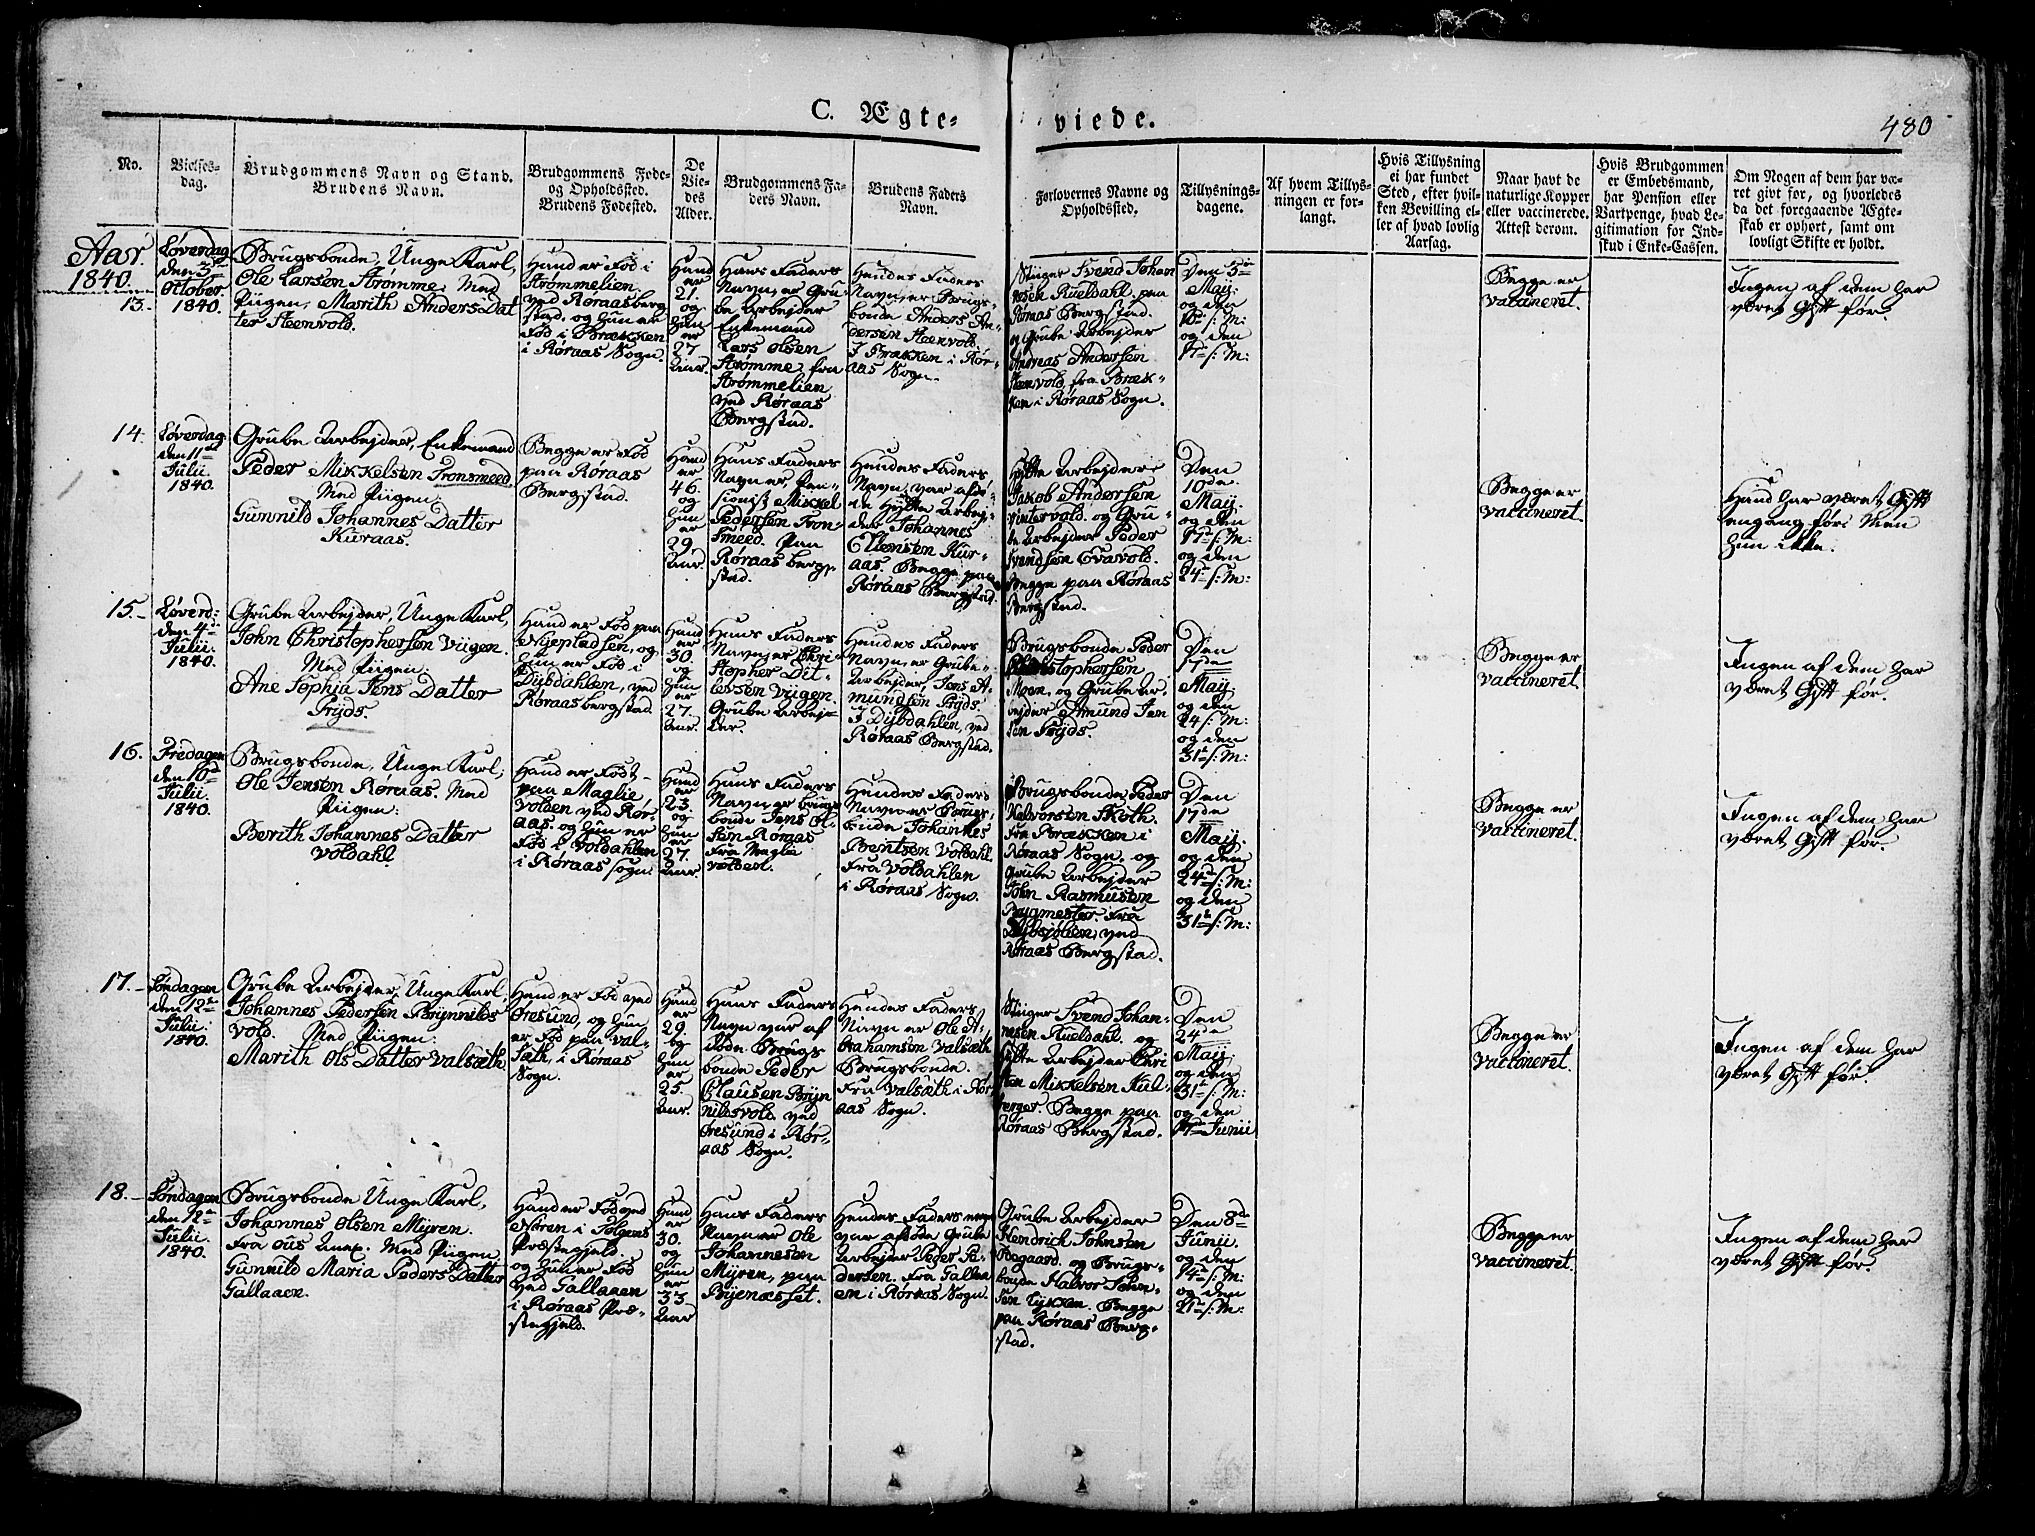 C. Ægte-
viede.
480
No.
Vielses-
dag.
Brudgommens Navn og Stand.
Brudens Navn.
Brudgommens Føde-
og Opholdssted.
Brudens Fødested.
De
Vie-
des
Alder.
Brudgommens Fa-
ders Navn.
Brudens Faders
Navn.
Forlovernes Navne og
Opholdssted.
Tillysnings-
dagene.
Af hvem Tillys-
ningen er for-
langt.
Hvis Tillysning
ei har fundet
Sted, efter hvil-
ken Bevilling el-
ler af hvad lovlig
Aarsag.
Naar havt de
naturlige Kopper
eller vaccinerede.
Attest derom.
Hvis Brudgommen
er Embedsmand,
har Pension eller
Vartpenge, hvad Le-
gitimation for Ind-
skud i Enke-Cassen.
Om Nogen af dem har væ-
ret givt før, og hvorledes
da det foregaaende Ægte-
skab er ophørt, samt om
lovligt Skifte er holdt.
Aar
1840.
13.
Løverdag
den 3de
Octobr
1840.
Brugsbonde, Unge Karl,
Ole Larsen Strømme, Med
Piigen, Marith Anders Dat
ter Steenvold.
Hand er Fød i
Strømmelien
ved Røraasberg
stad, og Hun er
Fød i Brækken
i Røraas Sogn.
Hand
er
21.
og
Hun
er
27
Aar.
Hans Faders
Navn, er Gru
be Arbejder
Enkemand
Lars Olsen
Strømme, fra
Strømmelien
ved Røraas
Bergstad.
Hendes Faders
Navn, er Brugs-
bonde Anders An-
dersen Steenvold.
I Brækken i Rør-
aas Sogn.
Stiger Svend Johan
nesen Kueldahl, paa
Røraas Bergstad.
og Grube Arbejder
Andreas Andersen
Steenvold, fra Bræk-
ken i Røraas Sogn.
Den 3de
Maij.
og den
10de s: M:
og den
17de s: M:
Begge er
vaccineret.
Ingen af dem har
været Gift før.
14.
Løverdag
den 11te
Julii
1840.
Grube Arbejder, Enkemand
Peder Mikkelsen Tronsmeed,
Med Piigen:
Gunnild Johannes Datter
Kuraas.
Begge er Fød
paa Røraas
Bergstad.
Hand
er
46.
og
Hun
er
29.
Aar.
Hans Faders
Navn er, Pen-
sionist Mikkel
Pedersen Tron-
smeed. Paa
Røraas berg-
stad.
Hendes Faders
Navn, var afdø-
de Hytte Arbej-
der Johannes
Ellensen Kur-
aas. Begge paa
Røraas Bergstad.
Hytte Arbejder
Jakob Andersen
Vintervold. og Gru-
be Arbejder Peder
Svendsen Evavold.
Begge paa Røraas
Bergstad.
Den
10de
Maij.
og den
17de s: M:
og den
24de s: M:
Begge er
vaccineret.
Hand har været Gift
engang før: Men
Hun ikke.
15.-
Løverd:
den 4de
Julii
1840.
Grube Arbejder, Unge Karl,
John Christophersen Viigen.
Med Piigen:
Ane Sophia Jens Datter
Prÿds.
Hand er Fød paa
Nyepladsen, og
Hun er Fød i
Dybdahlen, ved
Røraas bergstad.
Hand
er
30.
og
Hun
er
27.
Aar.
Hans Faders
Navn, er Chri-
stopher Dit-
levsen Viigen.
Grube Arbej-
der.
Hendes Faders
Navn, er Grube-
Arbejder, Jens A-
mundsen Prÿds.
I Dybdahlen, ved
Røraas Bergstad.
Brugsbonde Peder
Christophersen
Moen, og Grube er-
bejder Amund Jen
sen Prÿds.
Den
17de
Maij.
og den
24 s: M:
og den
31te s: M:
Begge er
vaccineret.
Ingen af dem har
været Gift før.
16.
Fredagen
den 10de
Julii.
1840.
Brugsbonde, Unge Karl,
Ole Jensen Røraas. Med
Piigen:
Berith Johannes Datter
Voldahl.
Hand er Født
paa Maglie
volden ved Rør-
aas. og Hun er
Fød i Voldahlen
i Røraas sogn.
Hand
er
23.
og
Hun
er
27.
Aar
Hans Faders
Navn, er brugs
bonde Jens Ol-
sen Røraas
Fra Maglie
volden.
Hendes Faders
Navn er Brugs-
bonde Johannes
Bentsen Voldahl.
Fra Voldahlen
i Røraas Sogn.
Brugsbonde Peder
Halvorsen Skoth.
Fra Brækken i
Røraas Sogn, og
Grube Arbejder
John Rasmusen
Bygmester. Fra
ved
Røraas Bergstad.
Den
17de
Maij.
og den
24de s: M:
og den
31te s: M:
Begge er
vaccineret.
Ingen af dem har
været Gift før.
17.-
Søndagen
den 12te
Julii.
1840.
Grube Arbejder, Unge Karl,
Johannes Pedersen Brynnilds
vold. Med Piigen:
Marith Ols Datter Valsæth.
Hand er Fød ved
Øresund, og Hun
er Fød paa Val-
sæth, i Røraas
Sogn.
Hand
er
29.
og
Hun
er
25.
Aar.
Hans Faders
Navn var af
døde Brugs
bonde Peder
Clausen Bryn
nilsvold, ved
Øresund i Rør-
aas Sogn.
Hendes Faders
Navn er Ole A-
brahamsen Valsæth
Brugsbonde.
Fra Valsæth i Rør
aas Sogn.
Stiger Svend Johan-
nesen Kueldahl. og
Hytte Arbejder Chri
sten Mikkelsen Kul-
berger. Begge paa
Røraas Bergstad.
Den
24de
Maij.
og den
31te s: M:
og den
17de Junii
Begge er
vaccineret.
Ingen af dem har
været Gift før.
18.-
Søndagen
den 12te
Julii.
1840.
Brugsbonde Unge Karl,
Johannes Olsen Myren.
Fra Ous Anex. Med Piigen
Gunnild Maria Peders Datter
Gallaaen.
Hand er Fød ved
Næren i Tolgens
Præstegjeld.
og Hun er Fød
ved Gallaaen
i Røraas Præ-
stegjeld.
Hand
er
30.
og
Hun
er
33.
Aar
Hans Faders
Navn er Ole
Johannesen
Myren, paa
Byenæsset.
Hendes Faders navn
var afdøde Grube
Arbejder Peder Pe-
dersen. Fra Gallaa
en i Røraas Sogn.
Grube Arbejder
Hendrich Johnsen
Aasgaard. og Brugs-
bonde Halvor John-
sen Lykken. Begge
paa Røraas Berg-
stad.
Den 8de
Junii.
og den
14de s: M:
og den
21de s: M:
Begge er
vaccineret.
Ingen af dem har
været Gift før.